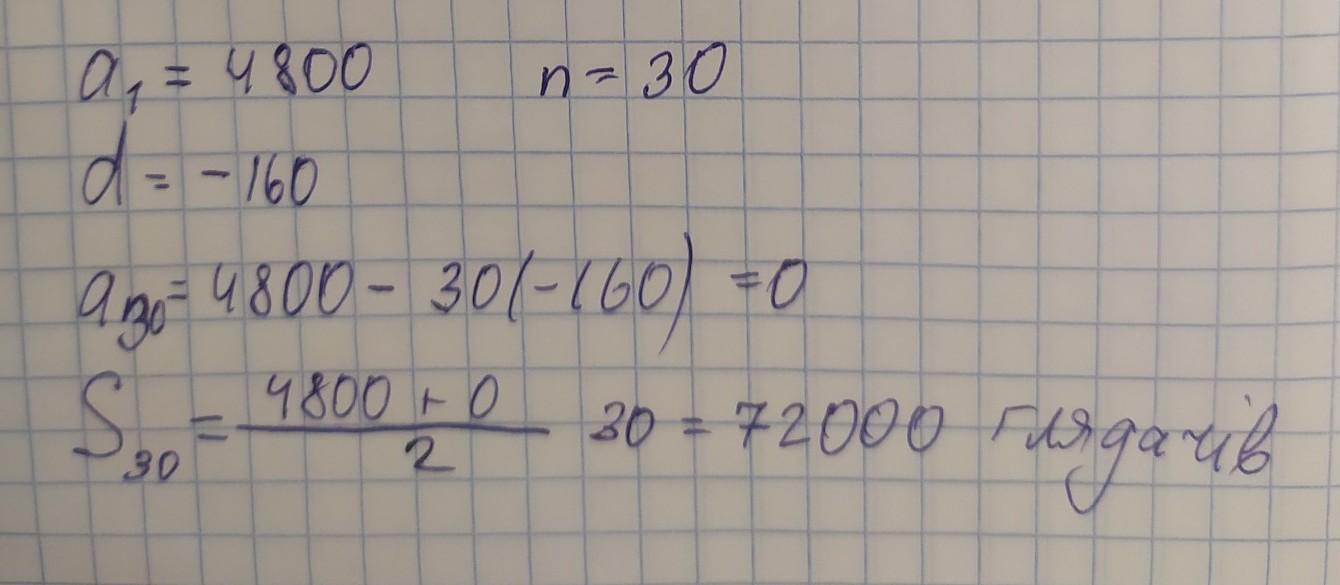 a₁ = 4800 n = 30
d = -160
a₃₀ = 4800 - 30(-160) = 0
S₃₀ = (4800 + 0)/2 30 = 72000 глядачів